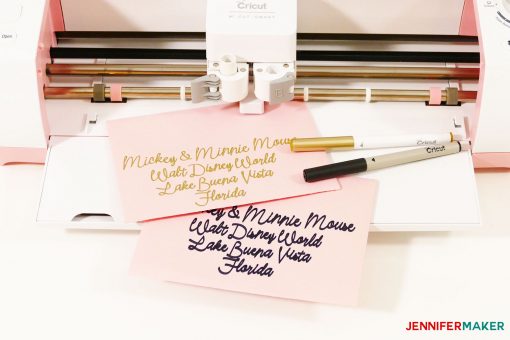 Open
Cricut
CUT SMART
Mickey & Minnie Mouse
Walt Disney World
Lake Buena Vista
Florida
Cricut
Cricut
key & Minnie Mouse
Walt Disney World
Lake Buena Vista
Florida
JENNIFERMAKER